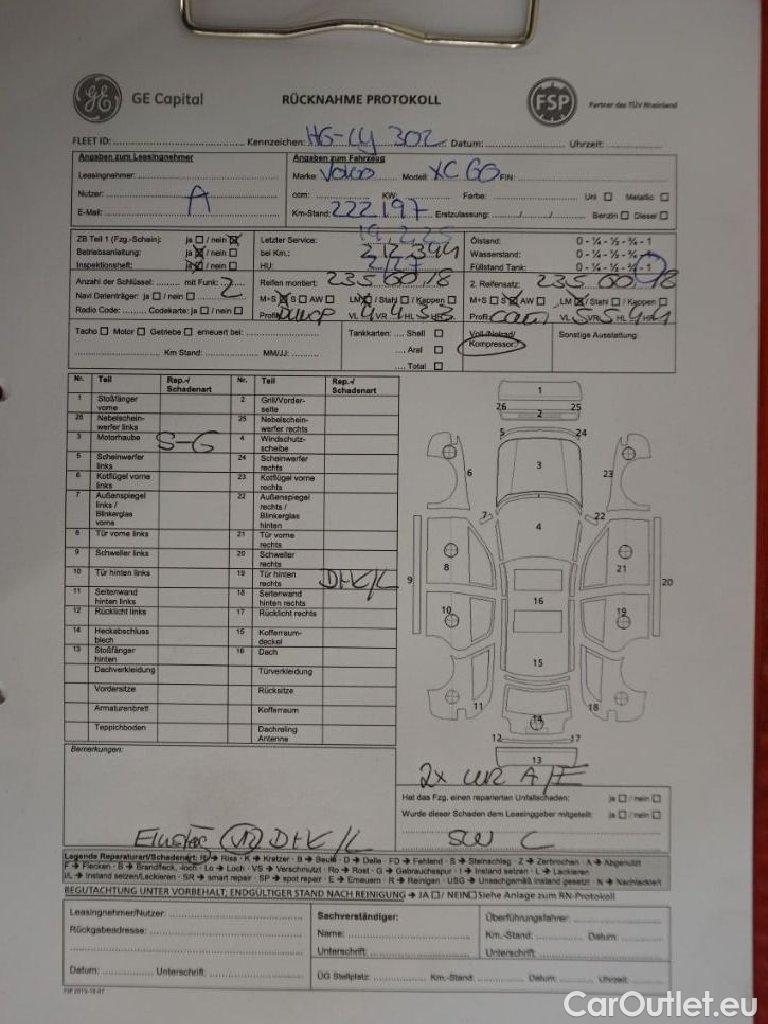 GE Capital RÜCKNAHME PROTOKOLL FSP Partner des TÜV Rheinland
FLEET ID: Kennzeichen: HG-LY 302 Datum: Uhrzeit:
Angaben zum Leasingnehmer Angaben zum Fahrzeug
Leasingnehmer: Marke: Volvo Modell: XC 60 FIN:
Nutzer: A ccm: KW: Farbe: Uni ☐ Metallic ☐
E-Mail: Km-Stand: 222197 Erstzulassung: Benzin ☐ Diesel ☐
ZB Teil 1 (Fzg.-Schein): ja ☐ / nein ☒ Letzter Service: Ölstand: 0 - ¼ - ½ - ¾ - 1
Betriebsanleitung: ja ☒ / nein ☐ bei Km.: Wasserstand: 0 - ¼ - ½ - ¾ - 1
Inspektionsheft: ja ☒ / nein ☐ HU: Füllstand Tank: 0 - ¼ - ½ - ¾ - 1
Anzahl der Schlüssel: mit Funk: 2 Reifen montiert: 235 60 18 2. Reifensatz: 235 60 18
Navi Datenträger: ja ☐ / nein ☐ M+S ☒ S ☐ AW ☐ LM ☒ / Stahl ☐ / Kappen ☐ M+S ☐ S ☒ AW ☐ LM ☒ / Stahl ☐ / Kappen ☐
Radio Code: Codekarte: ja ☐ / nein ☐ Profil: Dunlop VL 4 VR 4 HL 3 HR 3 Profil: Conti VL 5 VR 5 HL 4 HR 4
Tacho ☐ Motor ☐ Getriebe ☐ erneuert bei: Tankkarten: Shell ☐ Voll-/Notrad/ Sonstige Ausstattung:
Aral ☐ Kompressor:
Km Stand: MM/JJ: Total ☐
Nr. Teil Rep.-/ Schadenart Nr. Teil Rep.-/ Schadenart
1 Stoßfänger vorne 2 Grill/Vorderseite
26 Nebelscheinwerfer links 25 Nebelscheinwerfer rechts
3 Motorhaube S-G 4 Windschutzscheibe
5 Scheinwerfer links 24 Scheinwerfer rechts
6 Kotflügel vorne links 23 Kotflügel vorne rechts
7 Außenspiegel links / Blinkerglas vorne 22 Außenspiegel rechts / Blinkerglas hinten
8 Tür vorne links 21 Tür vorne rechts
9 Schweller links 20 Schweller rechts
10 Tür hinten links 19 Tür hinten rechts
11 Seitenwand hinten links 18 Seitenwand hinten rechts
12 Rücklicht links 17 Rücklicht rechts
14 Heckabschlussblech 15 Kofferraumdeckel
13 Stoßfänger hinten 16 Dach
Dachverkleidung Türverkleidung
Vordersitze Rücksitze
Armaturenbrett Kofferraum
Teppichboden Dachreling Antenne
1
26 25
2
5 24
3
6 23
7 22
4
8 21
9 20
10 19
16
15
11 18
14
12 17
13
Bemerkungen:
Hat das Fzg. einen reparierten Unfallschaden: ja ☐ / nein ☐
Wurde dieser Schaden dem Leasinggeber mitgeteilt: ja ☐ / nein ☐
Legende Reparaturart/Schadenart: Ri → Riss - K → Kratzer - B → Beule - D → Delle - FD → Fehlend - S → Steinschlag - Z → Zerbrochen - A → Abgenutzt
F → Flecken - B → Brandfleck, -loch - Lo → Loch - VS → Verschmutzt - Ro → Rost - G → Gebrauchsspur - I → Instand setzen - L → Lackieren
I/L → Instand setzen/Lackieren - SR → smart repair - SP → spot repair - E → Erneuern - R → Reinigen - USG → Unsachgemäß instand gesetzt - N → Nachlackiert
BEGUTACHTUNG UNTER VORBEHALT; ENDGÜLTIGER STAND NACH REINIGUNG → JA ☐ / NEIN ☐ Siehe Anlage zum RN-Protokoll
Leasingnehmer/Nutzer: Sachverständiger: Überführungsfahrer:
Rückgabeadresse: Name: Km.-Stand: Datum:
Unterschrift: Unterschrift:
Datum: Unterschrift: ÜG Stellplatz: Km.-Stand: Datum: Uhrzeit:
CarOutlet.eu